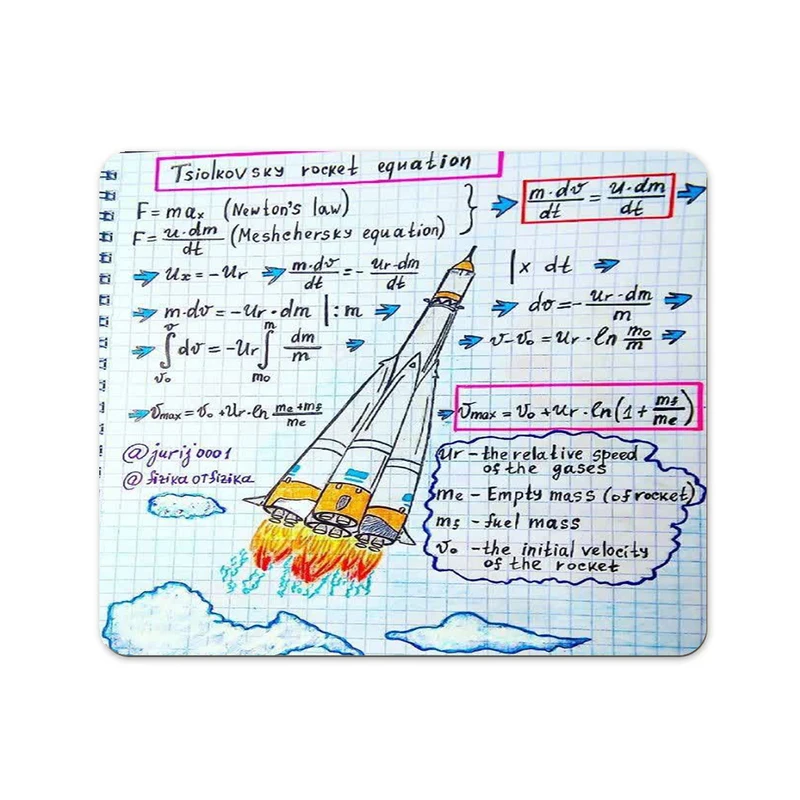 Tsiolkovsky rocket equation
F = maₓ (Newton's law)
F = u·dm/dt (Meshchersky equation) } m·dv/dt = u·dm/dt
uₓ = -ur m·dv/dt = - ur·dm/dt |x dt
m·dv = -ur·dm |:m dv = - ur·dm/m
∫ᵥ₀ᵛ dv = -ur ∫ₘ₀ᵐ dm/m v-v₀ = ur·ln m₀/m
vmax = v₀ + ur·ln me+mf/me vmax = v₀ + ur·ln(1 + mf/me)
@jurij0001
@fizika от fizika
ur - the relative speed
of the gases
me - Empty mass (of rocket)
mf - fuel mass
v₀ - the initial velocity
of the rocket